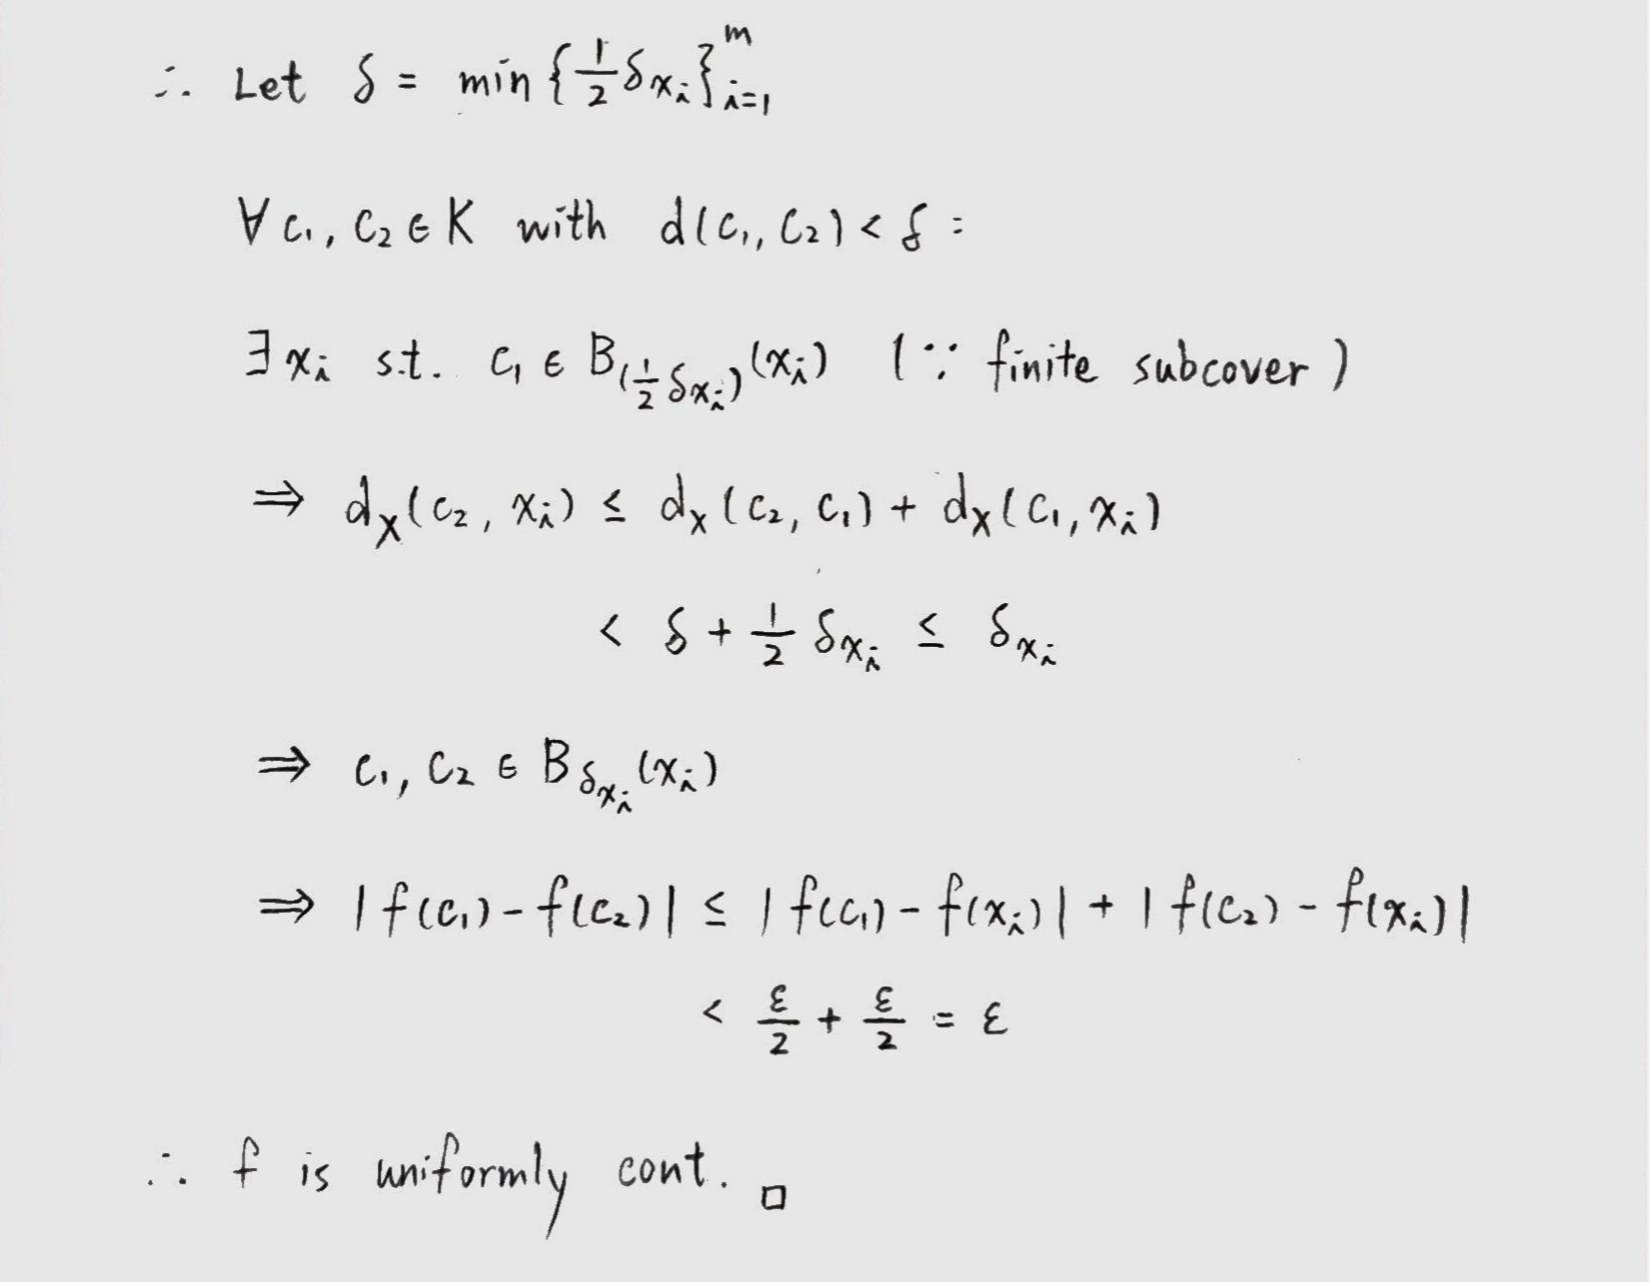 ∴ Let δ = min {½ δxᵢ}ᵐᵢ₌₁
∀ c₁, c₂ ∈ K with d(c₁, c₂) < δ :
∃ xᵢ s.t. c₁ ∈ B_(½ δxᵢ) (xᵢ) (∵ finite subcover)
⇒ d_X(c₂, xᵢ) ≤ d_X(c₂, c₁) + d_X(c₁, xᵢ)
< δ + ½ δxᵢ ≤ δxᵢ
⇒ c₁, c₂ ∈ B_δxᵢ (xᵢ)
⇒ |f(c₁) - f(c₂)| ≤ |f(c₁) - f(xᵢ)| + |f(c₂) - f(xᵢ)|
< ε/2 + ε/2 = ε
∴ f is uniformly cont. □